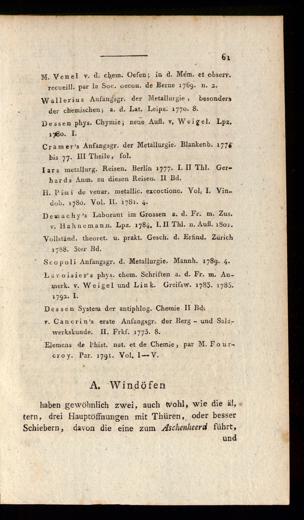 61
M. Venel v. d. chem. Oefen; in d. Mém. et observ.
recueill. par le Soc. oecon. de Berne 1769. n. 2.
Wallerius Anfangsgr. der Metallurgie, besonders
der chemischen; a. d. Lat. Leipz. 1770. 8.
Dessen phys. Chymie; neue Aufl. v. Weigel. Lpz.
1780. I.
Cramer's Anfangsgr. der Metallurgie. Blankenb. 1775
bis 77. III Theile, fol.
Iars metallurg. Reisen. Berlin 1777. I. II Thl. Ger-
hards Anm. zu diesen Reisen. II Bd.
H. Pini de venar. metallic. excoctione. Vol. I. Vin-
dob. 1780. Vol. II. 1781. 4.
Demachy's Laborant im Grossen a. d. Fr. m. Zus.
v. Hahnemann. Lpz. 1784. I. II Thl. n. Aufl. 1801.
Vollständ. theoret. u. prakt. Gesch. d. Erfind. Zürich
1788. 3ter Bd.
Scopoli Anfangsgr. d. Metallurgie. Mannh. 1789. 4.
Lavoisier's phys. chem. Schriften a. d. Fr. m. An-
merk. v. Weigel und Link. Greifsw. 1783. 1785.
1792. I.
Dessen System der antiphlog. Chemie II Bd.
v. Cancrin's erste Anfangsgr. der Berg- und Salz-
werkskunde. II. Frkf. 1773. 8.
Elemens de l'hist. nat. et de Chemie, par M. Four-
croy. Par. 1791. Vol. I—V.
A. Windöfen
haben gewöhnlich zwei, auch wohl, wie die äl-
tern, drei Hauptöffnungen mit Thüren, oder besser
Schiebern, davon die eine zum Aschenheerd führt,
und